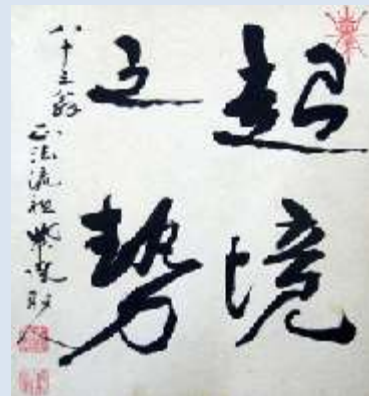 超境
之勢
八十三翁
正法流祖